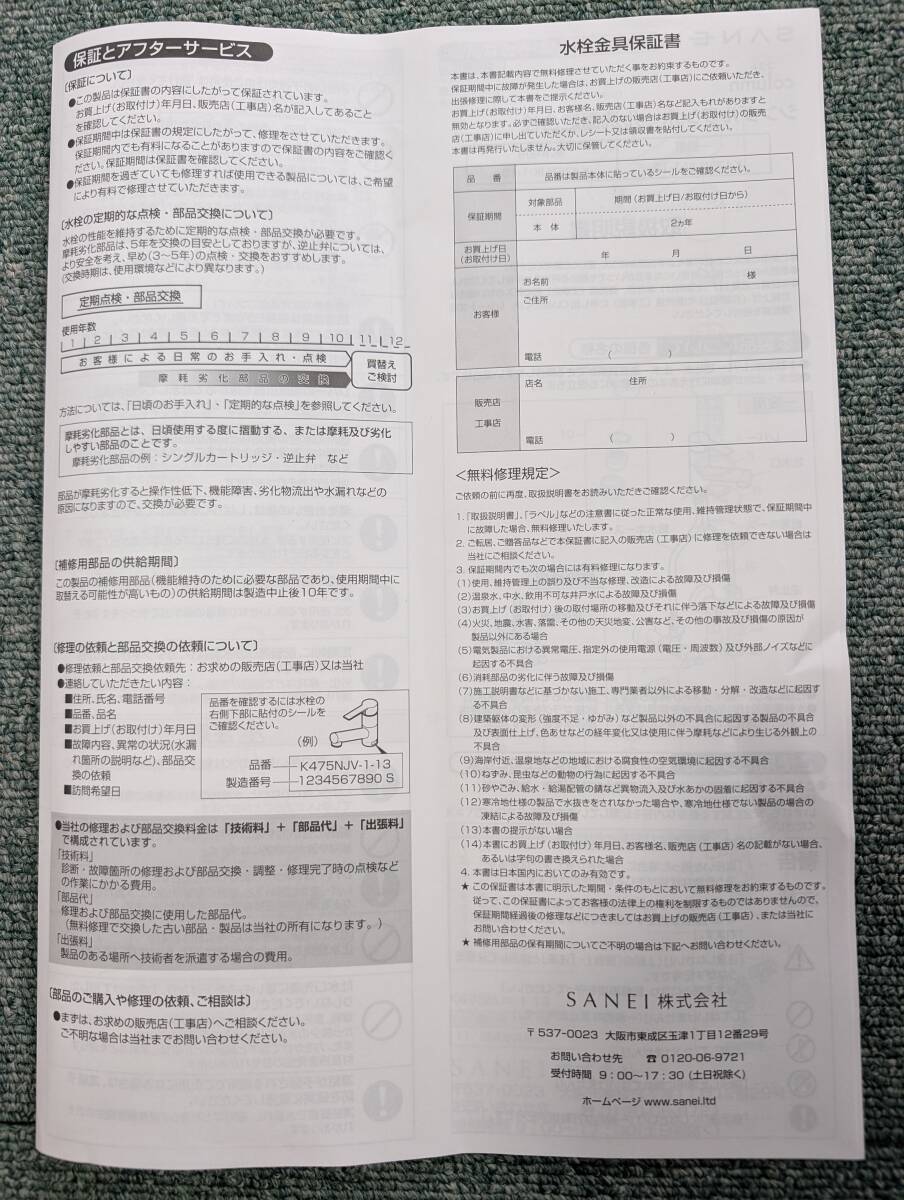 保証とアフターサービス
〔保証について〕
●この製品は保証書の内容にしたがって保証されています。
お買上げ(お取付け)年月日、販売店(工事店)名が記入してあること
を確認してください。
●保証期間中は保証書の規定にしたがって、修理をさせていただきます。
保証期間内でも有料になることがありますので保証書の内容をご確認く
ださい。保証期間は保証書を確認してください。
●保証期間を過ぎていても修理すれば使用できる製品については、ご希望
により有料で修理させていただきます。
〔水栓の定期的な点検・部品交換について〕
水栓の性能を維持するために定期的な点検・部品交換が必要です。
摩耗劣化部品は、5年を交換の目安としておりますが、逆止弁については、
より安全を考え、早め(3〜5年)の点検・交換をおすすめします。
(交換時期は、使用環境などにより異なります。)
定期点検・部品交換
使用年数
1 2 3 4 5 6 7 8 9 10 11 12
お客様による日常のお手入れ・点検
摩耗劣化部品の交換
買替え
ご検討
方法については、「日頃のお手入れ」、「定期的な点検」を参照してください。
摩耗劣化部品とは、日頃使用する度に摺動する、または摩耗及び劣化
しやすい部品のことです。
摩耗劣化部品の例：シングルカートリッジ・逆止弁 など
部品が摩耗劣化すると操作性低下、機能障害、劣化物流出や水漏れなどの
原因になりますので、交換が必要です。
〔補修用部品の供給期間〕
この製品の補修用部品(機能維持のために必要な部品であり、使用期間中に
取替える可能性が高いもの)の供給期間は製造中止後10年です。
〔修理の依頼と部品交換の依頼について〕
●修理依頼と部品交換依頼先：お求めの販売店(工事店)又は当社
●連絡していただきたい内容：
■住所、氏名、電話番号
■品番、品名
■お買上げ(お取付け)年月日
■故障内容、異常の状況(水漏
れ箇所の説明など)、部品交
換の依頼
■訪問希望日
品番を確認するには水栓の
右側下部に貼付のシールを
ご確認ください。
(例)
品番 K475NJV-1-13
製造番号 1234567890 S
●当社の修理および部品交換料金は「技術料」＋「部品代」＋「出張料」
で構成されています。
「技術料」
診断・故障箇所の修理および部品交換・調整・修理完了時の点検など
の作業にかかる費用。
「部品代」
修理および部品交換に使用した部品代。
(無料修理で交換した古い部品・製品は当社の所有になります。)
「出張料」
製品のある場所へ技術者を派遣する場合の費用。
〔部品のご購入や修理の依頼、ご相談は〕
●まずは、お求めの販売店(工事店)へご相談ください。
ご不明な場合は当社までお問い合わせください。
水栓金具保証書
本書は、本書記載内容で無料修理させていただく事をお約束するものです。
保証期間中に故障が発生した場合は、お買上げの販売店(工事店)にご依頼いただき、
出張修理に際して本書をご提示ください。
お買上げ(お取付け)年月日、お客様名、販売店(工事店)名など記入もれがありますと
無効となります。必ずご確認いただき、記入のない場合はお買上げ(お取付け)の販売
店(工事店)に申し出ていただくか、レシート又は領収書を貼付してください。
本書は再発行いたしません。大切に保管してください。
品 番 品番は製品本体に貼っているシールをご確認ください。
保証期間 対象部品 期間（お買上げ日/お取付け日から）
本 体 2ヵ年
お買上げ日
(お取付け日) 年 月 日
お客様
お名前 様
ご住所
電話 （ ）
販売店
工事店
店名 住所
電話 （ ）
＜無料修理規定＞
ご依頼の前に再度、取扱説明書をお読みいただきご確認ください。
1.「取扱説明書」、「ラベル」などの注意書に従った正常な使用、維持管理状態で、保証期間中
に故障した場合、無料修理いたします。
2. ご転居、ご贈答品などで本保証書に記入の販売店(工事店)に修理を依頼できない場合は
当社にご相談ください。
3. 保証期間内でも次の場合には有料修理になります。
(1)使用、維持管理上の誤り及び不当な修理、改造による故障及び損傷
(2)温泉水、中水、飲用不可な井戸水による故障及び損傷
(3)お買上げ(お取付け)後の取付場所の移動及びそれに伴う落下などによる故障及び損傷
(4)火災、地震、水害、落雷、その他の天災地変、公害など、その他の事故及び損傷の原因が
製品以外にある場合
(5)電気製品における異常電圧、指定外の使用電源（電圧・周波数）及び外部ノイズなどに
起因する不具合
(6)消耗部品の劣化に伴う故障及び損傷
(7)施工説明書などに基づかない施工、専門業者以外による移動・分解・改造などに起因す
る不具合
(8)建築躯体の変形（強度不足・ゆがみ）など製品以外の不具合に起因する製品の不具合
及び表面仕上げ、色あせなどの経年変化又は使用に伴う摩耗などにより生じる外観上の
不具合
(9)海岸付近、温泉地などの地域における腐食性の空気環境に起因する不具合
(10)ねずみ、昆虫などの動物の行為に起因する不具合
(11)砂やごみ、給水・給湯配管の錆など異物流入及び水あかの固着に起因する不具合
(12)寒冷地仕様の製品で水抜きをされなかった場合や、寒冷地仕様でない製品の場合の
凍結による故障及び損傷
(13)本書の提示がない場合
(14)本書にお買上げ(お取付け)年月日、お客様名、販売店(工事店)名の記載がない場合、
あるいは字句の書き換えられた場合
4. 本書は日本国内においてのみ有効です。
★ この保証書は本書に明示した期間・条件のもとにおいて無料修理をお約束するものです。
従って、この保証書によってお客様の法律上の権利を制限するものではありませんので、
保証期間経過後の修理などにつきましてはお買上げの販売店(工事店)、または当社に
お問い合わせください。
★ 補修用部品の保有期間についてご不明の場合は下記へお問い合わせください。
SANEI 株式会社
〒537-0023 大阪市東成区玉津1丁目12番29号
お問い合わせ先 ☎ 0120-06-9721
受付時間 9：00〜17：30 (土日祝除く)
ホームページ www.sanei.ltd